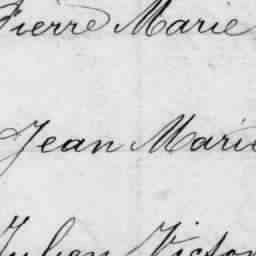 Pierre Marie
Jean Marie
Julien Victor